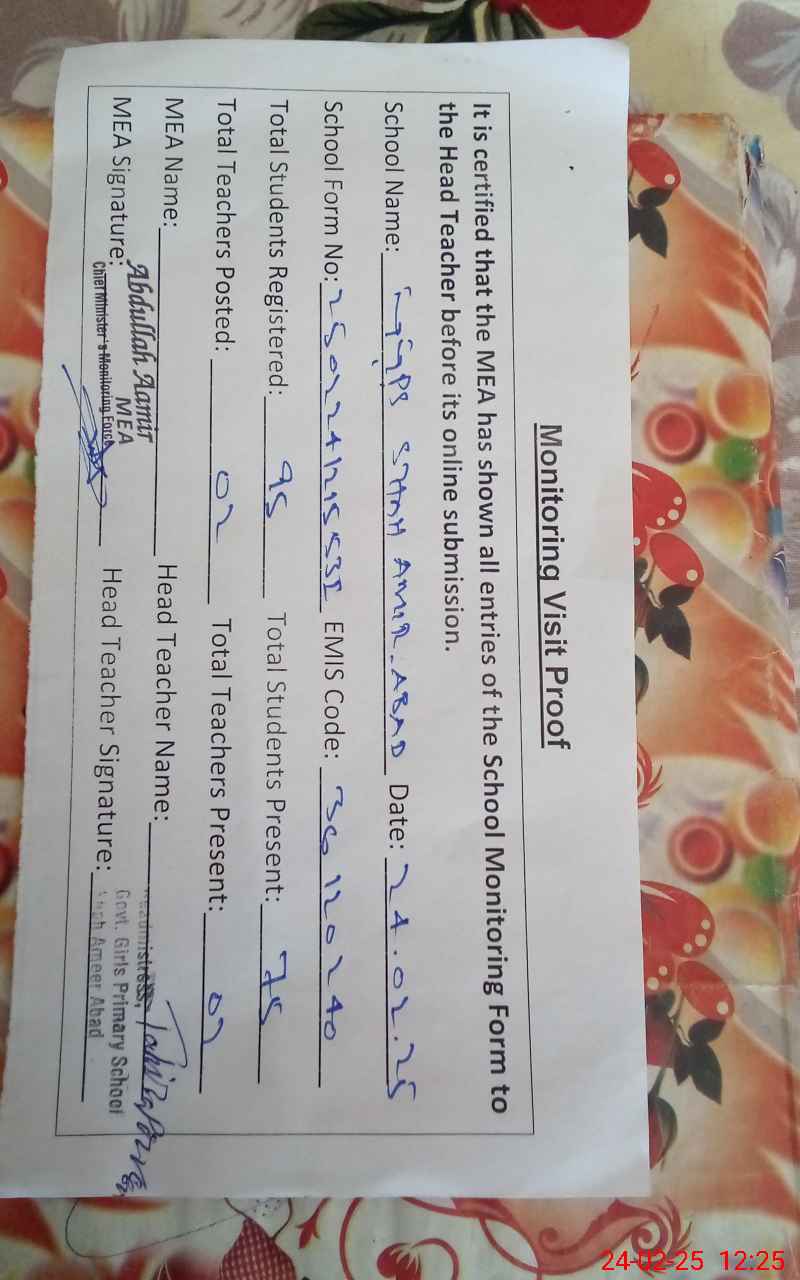 Monitoring Visit Proof
It is certified that the MEA has shown all entries of the School Monitoring Form to
the Head Teacher before its online submission.
School Name: GGPS SHAH AMIR ABAD Date: 24.02.25
School Form No: EMIS Code: 36120240
Total Students Registered: 95 Total Students Present: 75
Total Teachers Posted: 02 Total Teachers Present: 02
MEA Name: Abdullah Aamir Head Teacher Name:
MEA
MEA Signature: Chief Minister's Monitoring Force Head Teacher Signature:
Headmistress,
Govt. Girls Primary School
Shah Ameer Abad
24-02-25 12:25